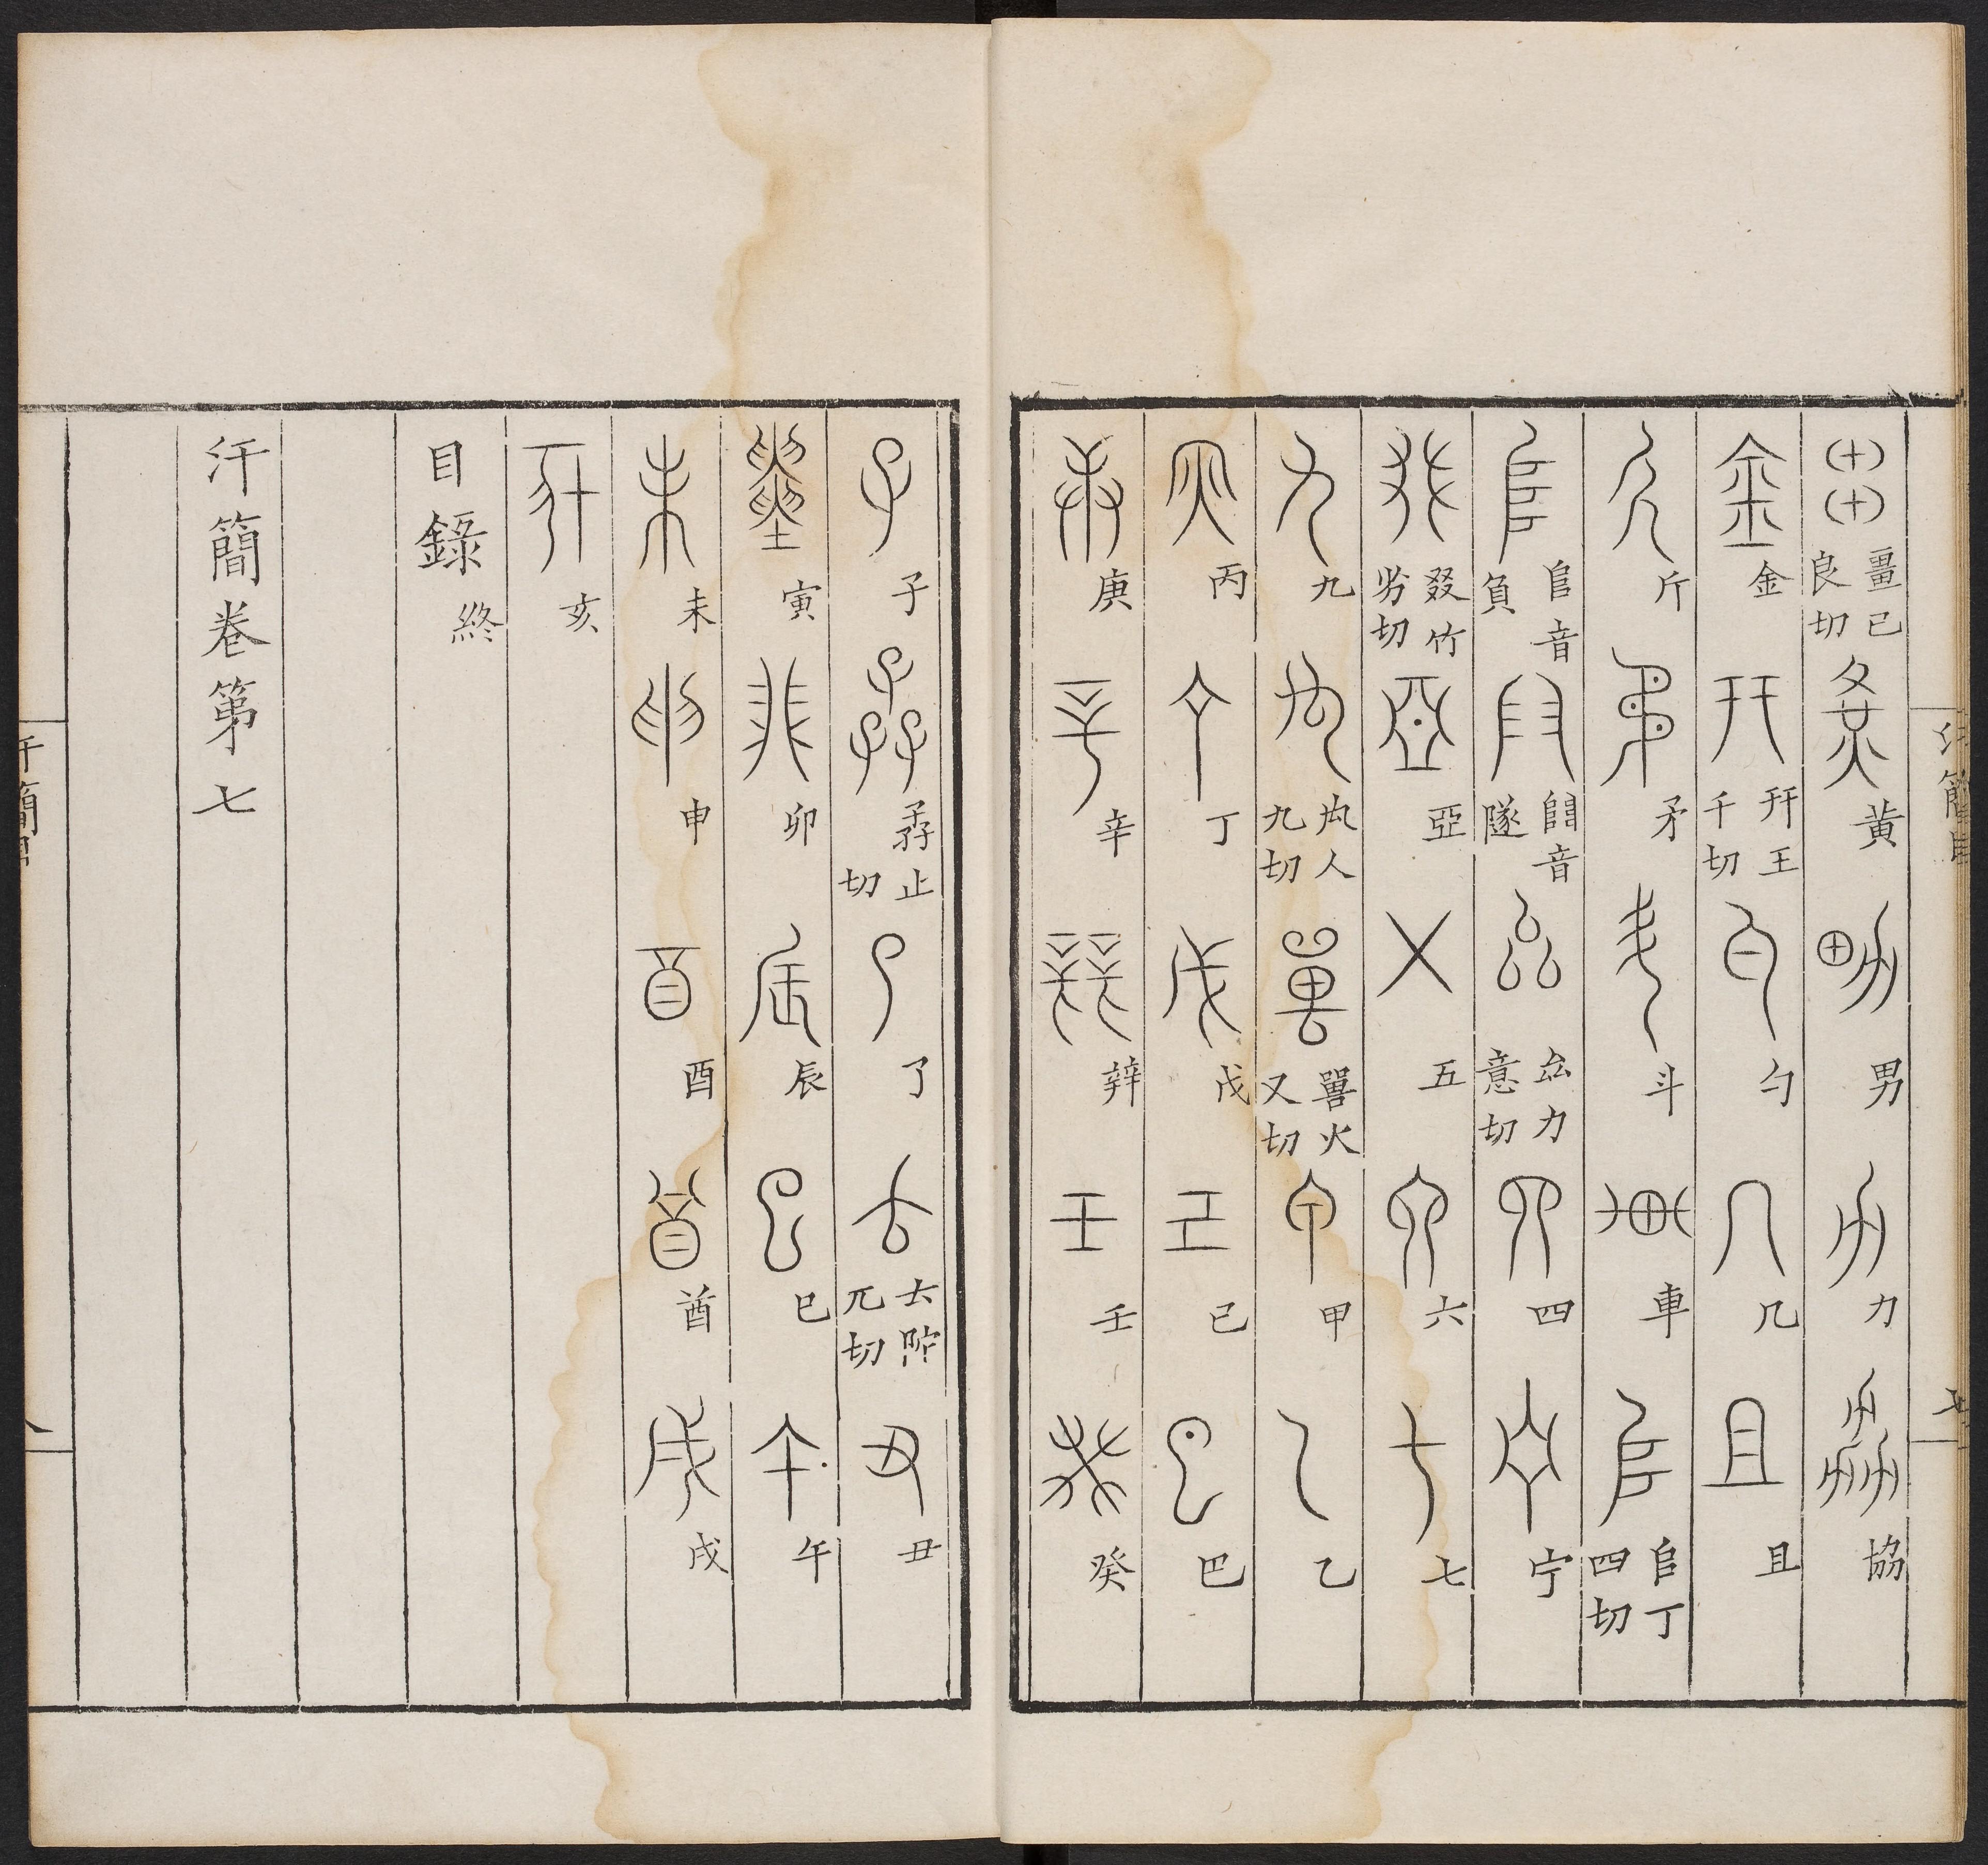 畺己良切 黄 男 力 協
金 幵王千切 勺 几 且
斤 矛 斗 車 𠂤丁四切
𨸏音負 𨺅音隊 厽力意切 四 宁
叕竹劣切 亞 五 六 七
九 禸人九切 嘼火又切 甲 乙
丙 丁 戊 己 巴
庚 辛 辡 壬 癸
子 孨止切 了 𠫓陀兀切 丑
寅 卯 辰 巳 午
未 申 酉 酋 戌
亥
目錄終
汗簡卷第七